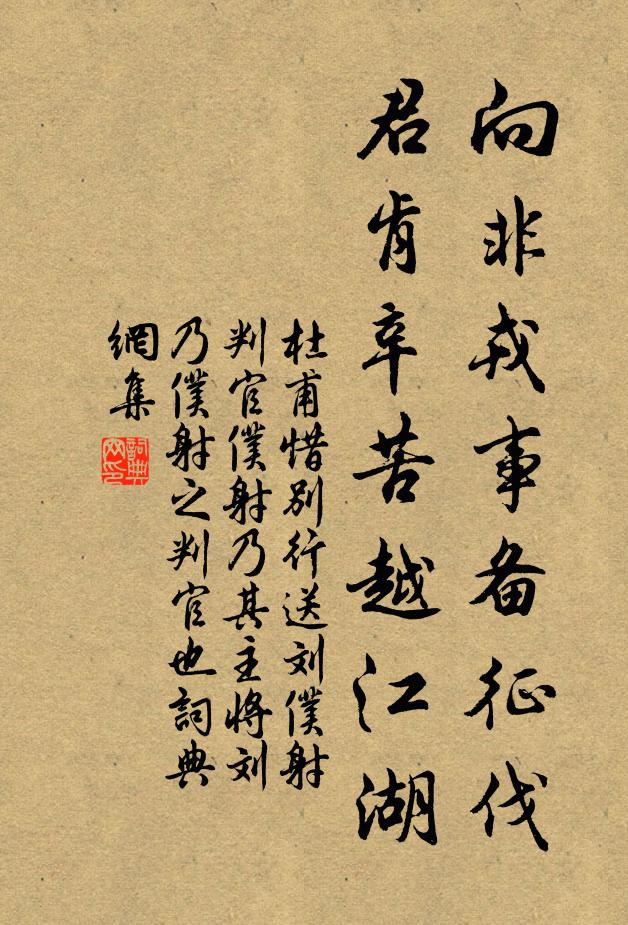 向非戎事备征伐
君肯辛苦越江湖
杜甫惜别行送刘僕射
判官僕射乃其主将刘
乃僕射之判官也詞典
網集
詞典
网印